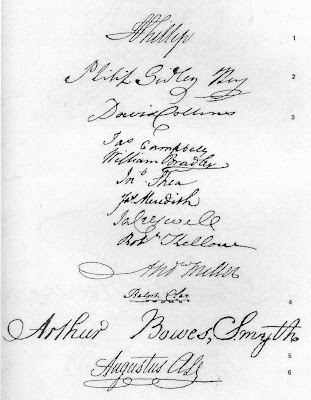 A Phillip 1
Philip Gidley King 2
David Collins 3
Jas Campbell
William Bradley
Jno Shea
Jas Meredith
Jn Creswell
Robt Kellow
Andw Miller
Ralph Clark 4
Arthur Bowes, Smyth 5
Augustus Alt 6